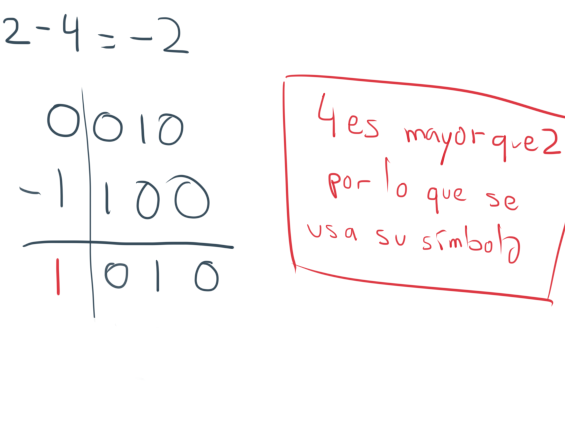 2 - 4 = - 2
0 0 1 0
- 1 1 0 0
1 0 1 0
4 es mayor que 2
por lo que se
usa su símbolo